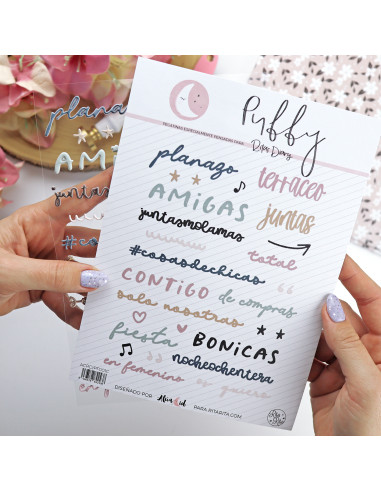 Puffy
Rita's Diary
planazo
terraceo
AMIGAS
juntas
juntasmolamas
total
#cosasdechicas
CONTIGO
de compras
solo nosotras
fiesta
BONICAS
nocheochentera
en femenino
os quiero
DISEÑADO POR
PARA RITARITA.COM
planazo
AMIG
junta
#co